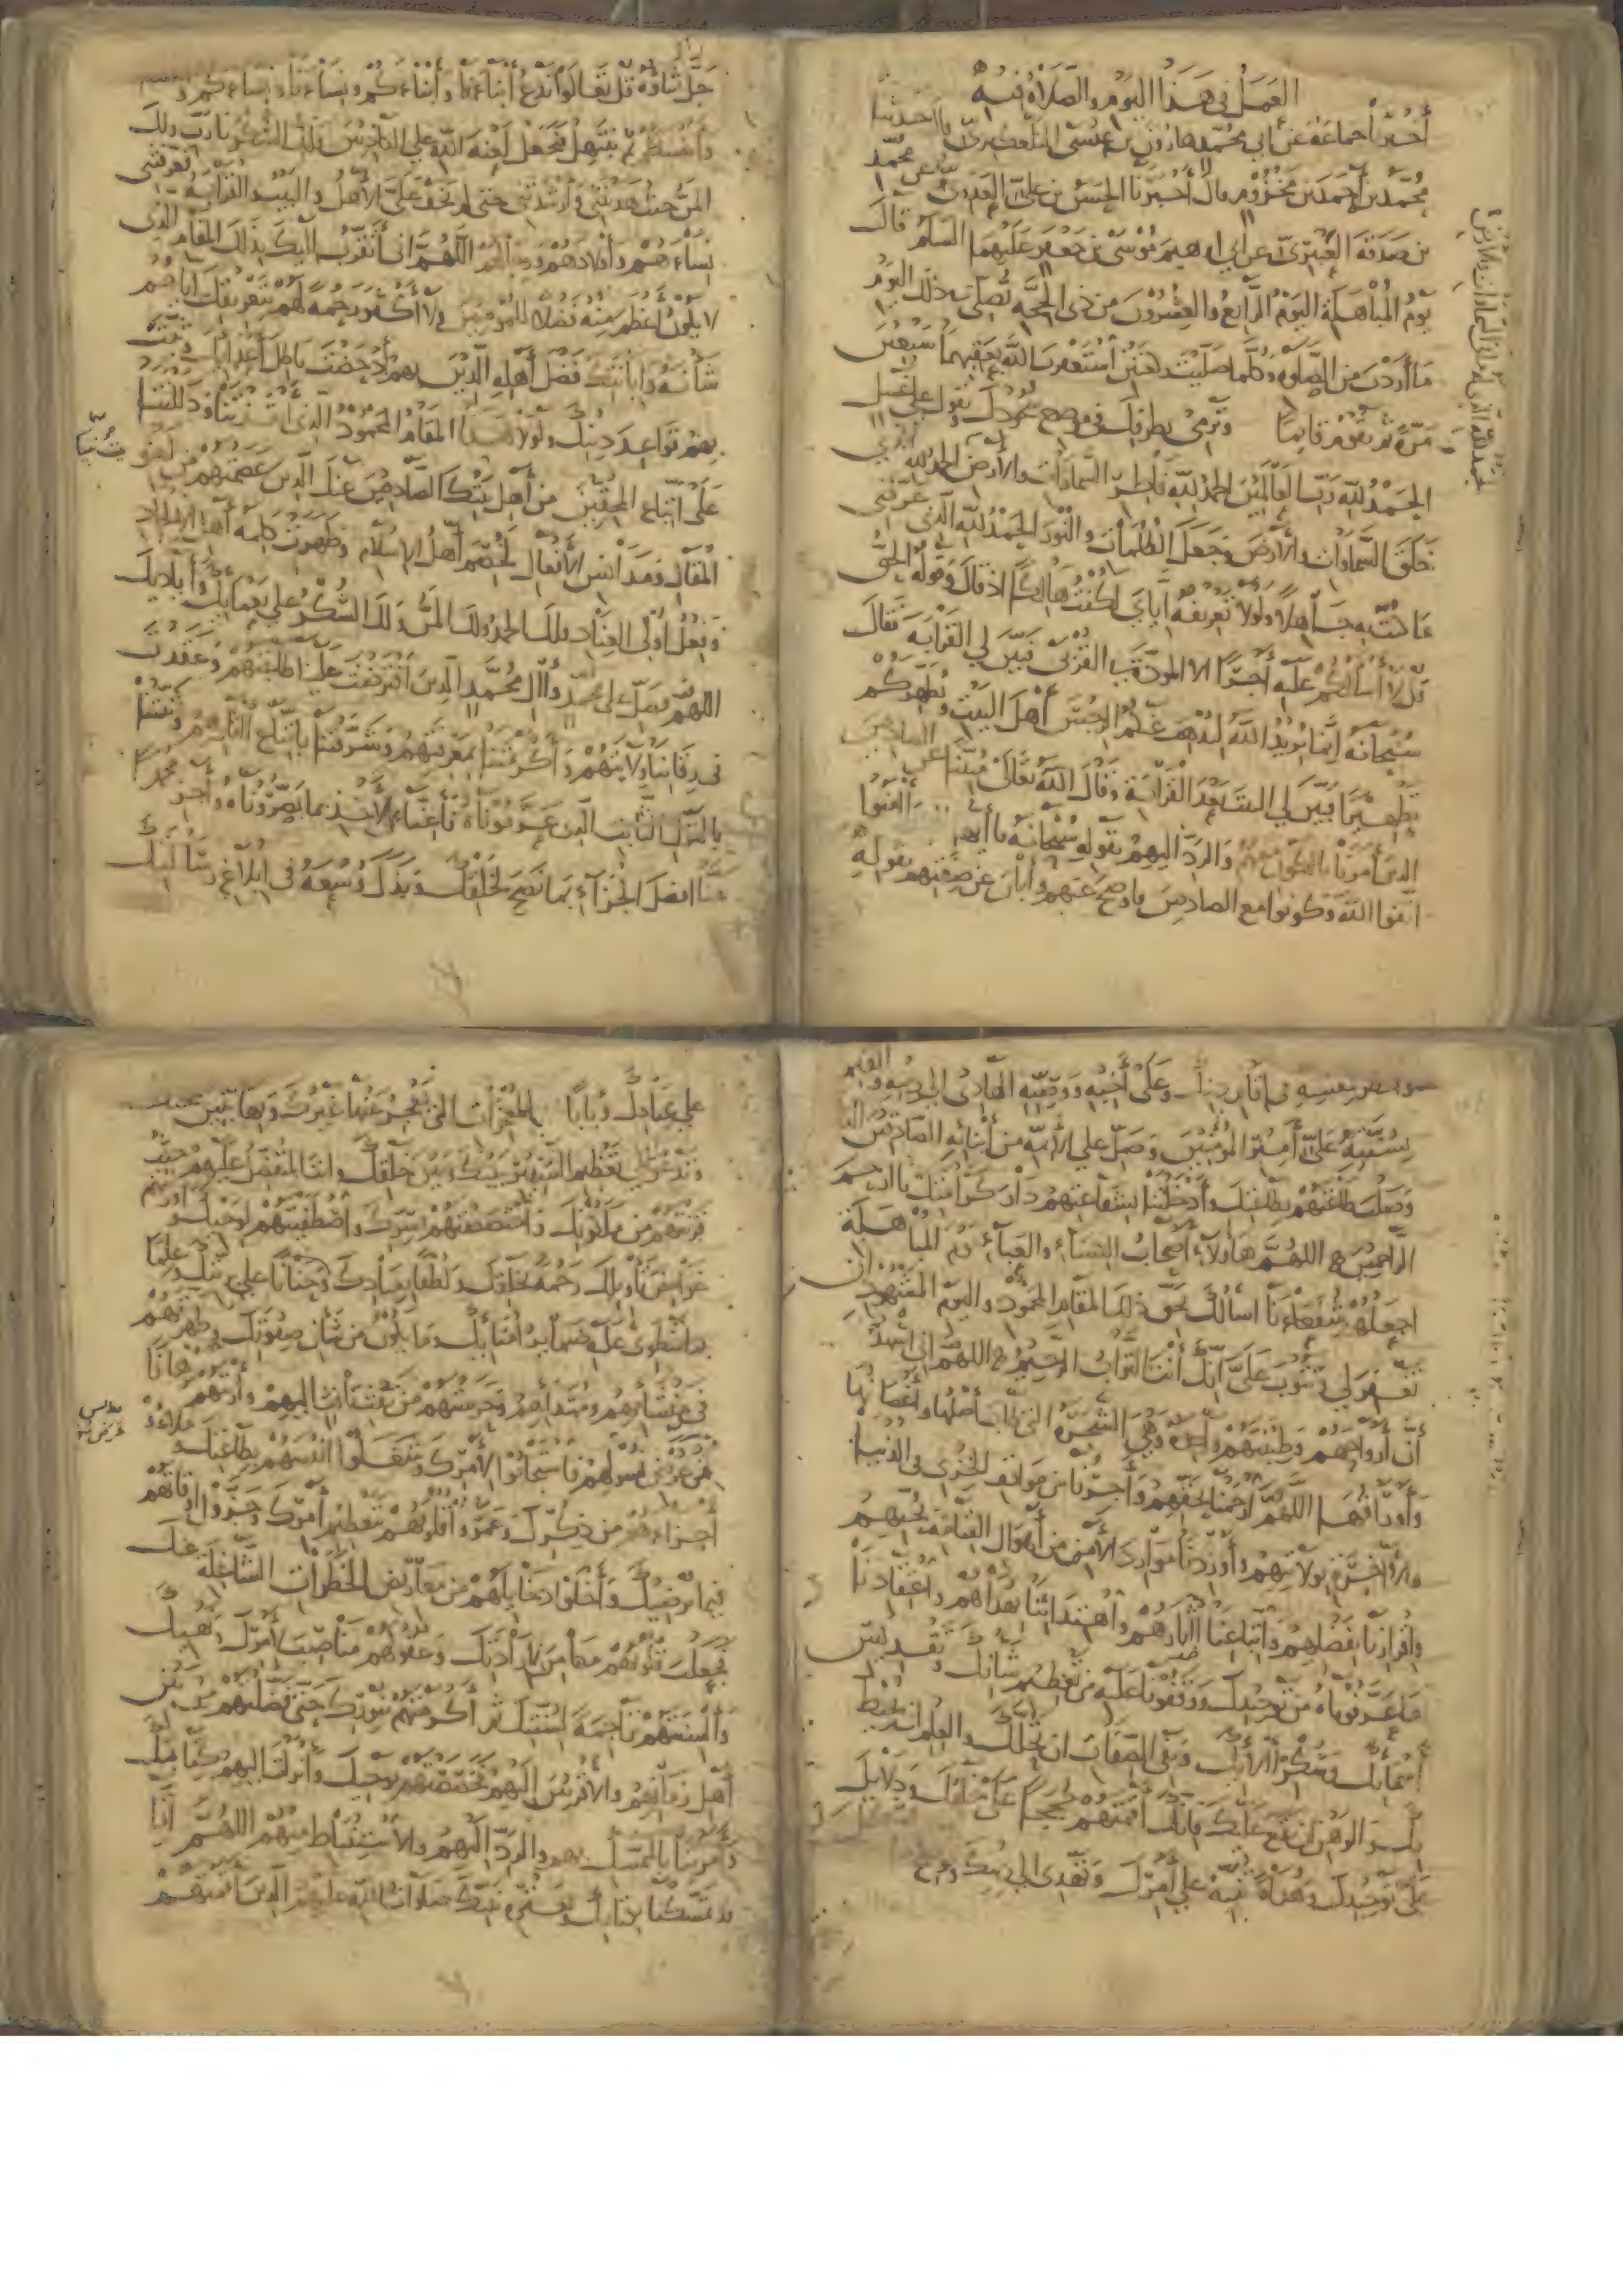 العمل في هذا اليوم والصلاة فيه
أخبرنا جماعة عن أبي محمد هارون بن موسى التلعكبري قال حدثنا
محمد بن أحمد بن مخزوم قال أخبرنا الحسن بن علي العدوي عن محمد
بن صدقة العنبري عن أبي ابرهيم موسى بن جعفر عليهما السلم قال
يوم المباهلة اليوم الرابع والعشرون من ذي الحجة تصلي في ذلك اليوم
ما أردت من الصلوة وكلما صليت ركعتين استغفرت الله بعقبهما سبعين
مرة ثم تقوم قايما وترمي بطرفك في موضع سجودك وتقول على غسل
الحمد لله رب العالمين الحمد لله فاطر السماوات والأرض الحمد لله الذي
خلق السماوات والأرض وجعل الظلمات والنور الحمد لله الذي عرفني
ما كنت به جاهلا ولولا تعريفه أياي لكنت هالكا اذ قال وقوله الحق
قل لا أسألكم عليه أجرا الا المودة في القربى فبين لي القرابة فقال
سبحانه إنما يريد الله ليذهب عنكم الرجس أهل البيت ويطهركم
تطهيرا فبين لي البيت بعد القرابة وقال الله تعالى مبينا عن الصادقين
الذين أمرنا بالكون معهم والرد اليهم بقوله سبحانه يا أيها الذين آمنوا
اتقوا الله وكونوا مع الصادقين فاوضح عنهم وأبان عن صفتهم بقوله
جل ثناؤه قل تعالوا ندع أبناءنا وأبناءكم ونساءنا ونساءكم وأنفسنا
وأنفسكم ثم نبتهل فنجعل لعنة الله على الكاذبين فلك الشكر يا رب ولك
المن حيث هديتني وأرشدتني حتى لم يخف علي الأهل والبيت والقرابة فعرفتني
نساءهم وأولادهم ورجالهم اللهم اني أتقرب اليك بذلك المقام الذي
لا يكون أعظم منه فضلا للمؤمنين ولا أكثر رحمة لهم بتعريفك اياهم
شأنه وابانتك فضل أهله الذين بهم أدحضت باطل أعدايك وثبت
بهم قواعد دينك ولولا هذا المقام المحمود الذي أنقذتنا ودللتنا
على اتباع المحقين من أهل بيتك الصادقين عنك الذين عصمتهم من لغو
المقال ومدانس الأفعال لخصم أهل الاسلام وظهرت كلمة أهل الالحاد
وفعل أولي العناد فلك الحمد ولك المن ولك الشكر على نعمايك وأياديك
اللهم فصل على محمد وآل محمد الذين افترضت علينا طاعتهم وعقدت
في رقابنا ولايتهم وأكرمتنا بمعرفتهم وشرفتنا باتباع آثارهم وثبتنا
بالقول الثابت الذي عرفوناه فأعنا على الأخذ بما بصروناه وأجز محمدا
عنا افضل الجزآء بما نصح لخلقك وبذل وسعه في ابلاغ رسالتك
وأخطر بنفسه في إقامة دينك وعلى أخيه ووصيه الهادي إلى دينه والقيم
بسنته علي أمير المؤمنين وصل على الأئمة من أبنائه الصادقين الذين
وصلت طاعتهم بطاعتك وأدخلنا بشفاعتهم دار كرامتك يا ارحم
الراحمين اللهم هاؤلآء أصحاب الكساء والعبآء يوم المباهلة
اجعلهم شفعاءنا اسألك بحق ذلك المقام المحمود واليوم المشهود ان
تغفر لي وتتوب علي انك أنت التواب الرحيم اللهم اني أشهد
أن أرواحهم وطينتهم واحدة وهي الشجرة التي طاب أصلها وأغصانها
وأوراقها اللهم ارحمنا بحقهم وأجرنا من مواقف الخزي في الدنيا
والآخرة بولايتهم وأوردنا موارد الأمن من أهوال القيامة بحبهم
واقرارنا بفضلهم واتباعنا آثارهم واهتدائنا بهداهم واعتقادنا
ما عرفوناه من توحيدك ووقفونا عليه من تعظيم شأنك وتقديس
أسمائك وشكر آلائك ونفي الصفات ان تحلك والعلم ان يحيط
بك والوهم ان يقع عليك فانك أقمتهم حججا على خلقك ودلايل
على توحيدك وهداة تنبه على أمرك وتهدي إلى دينك وتوضح
على عبادك وبابا للمعجزات التي يعجز عنها غيرك وبها تبين حجتك
وتدعو إلى تعظيم السفير بينك وبين خلقك وانت المتفضل عليهم حيث
قربتهم من ملكوتك واختصصتهم بسرك واصطفيتهم لوحيك وأورثتهم
غوامض تأويلك رحمة بخلقك ولطفا بعبادك وحنانا على بريتك وعلما
بما تنطوي عليه ضماير أمنايك وما يكون من شأن صفوتك وطهرتهم
في منشأهم ومبتدأهم وحرستهم من نفث نافث اليهم وأريتهم برهانا
على عرض بسولهم فاستجابوا لأمرك وشغلوا انفسهم بطاعتك وملأوا
أجزاءهم من ذكرك وعمروا قلوبهم بتعظيم أمرك وجزؤوا أوقاتهم
فيما يرضيك وأخلوا دخايلهم من معاريض الخطرات الشاغلة عنك
فجعلت قلوبهم مكامن لارادتك وعقولهم مناصب لأمرك ونهيك
وألسنتهم تراجمة لسنتك ثم أكرمتهم بنورك حتى فضلتهم من بين
أهل زمانهم والأقربين اليهم فخصصتهم بوحيك وأنزلت اليهم كتابك
وأمرتنا بالتمسك بهم والرد اليهم والاستنباط منهم اللهم إنا
قد تمسكنا بكتابك وبعترة نبيك صلوات الله عليهم الذين أقمتهم